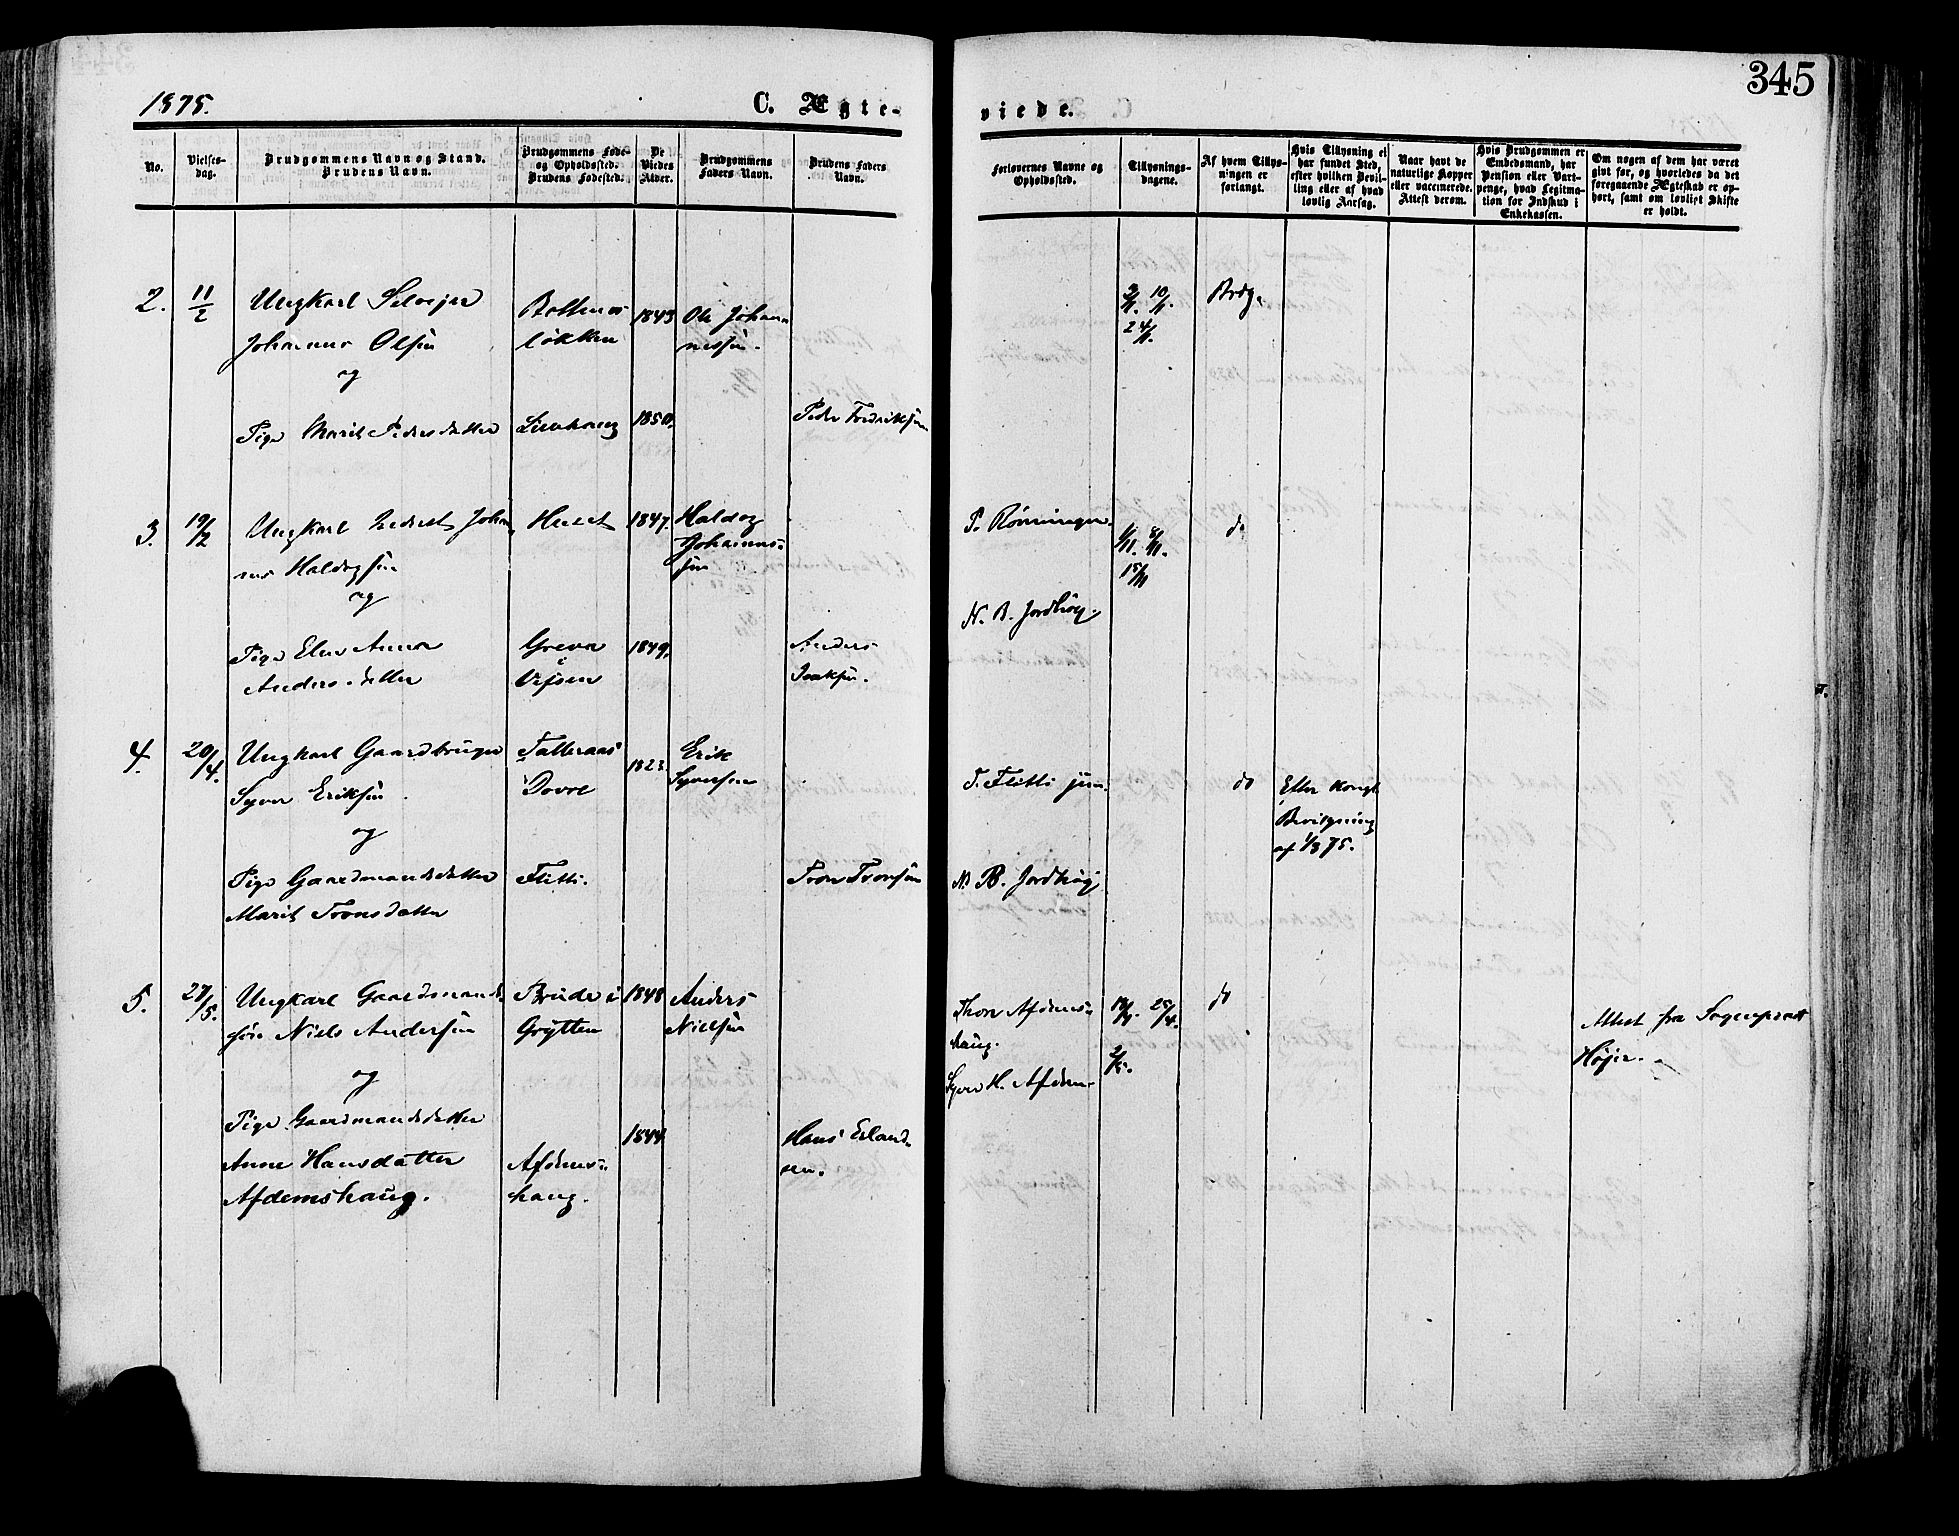 345
1875.
C. Ægte-
viede.
No.
Vielses-
dag.
Brudgommens Navn og Stand.
Brudens Navn.
Brudgommens Føde-
og Opholdssted.
Brudens Fødested.
De
Viedes
Alder.
Brudgommens
Faders Navn.
Brudens Faders
Navn.
Forlovernes Navne og
Opholdssted.
Tillysnings-
dagene.
Af hvem Tillys-
ningen er
forlangt.
Hvis Tillysning ei
har fundet Sted,
efter hvilken Bevil-
ling eller af hvad
lovlig Aarsag.
Naar havt de
naturlige Kopper
eller vaccinerede.
Attest derom.
Hvis Brudgommen er
Embedsmand, har
Pension eller Vart-
penge, hvad Legitima-
tion for Indskud i
Enkekassen.
Om nogen af dem har været
gift før, og hvorledes da det
foregaaende Ægteskab er op-
hørt, samt om lovligt Skifte
er holdt.
2.
11/2
Ungkarl Selvejer
Johannes Olsen
og
Pige Marit Pedersdatter
løkken
1843
1850.
Ole Johan
nessen.
Peder Fredriksen
Brdg.
3.
19/2
Ungkarl Johan
nes Haldogsen
og
Pige Anna
Andersdatter
1847.
1849.
Haldog
Johannes-
sen
Anders
Isaksen.
P. Rønningen.
N. B. Jordhøy.
do
4.
20/4.
Ungkarl Gaardbruger
Syver Eriksen
og
Pige Gaardmandsdatter
Marit Tronsdatter
Talleraas
Dovre
Flitti.
1823
Erik
Syversen
Tron Tronsen
T. Flitti jun.
N. B. Jordhøy
do
Efter Kongl.
Bevilgning
af 1/3 75.
5.
27/5.
Ungkarl Gaardmands
søn Niels Andersen
og
Pige Gaardmandsdatter
Anne Hansdatter
Afdemshaug.
Brude i
Grytten
Afdems-
haug.
1848
1844
Anders
Nielsen
Hans Erland
sen.
Thor Afdems-
haug.
Syver H. Afdem
18/4. 25/4.
2/5.
do
Attest fra Sogneprest
Højer.